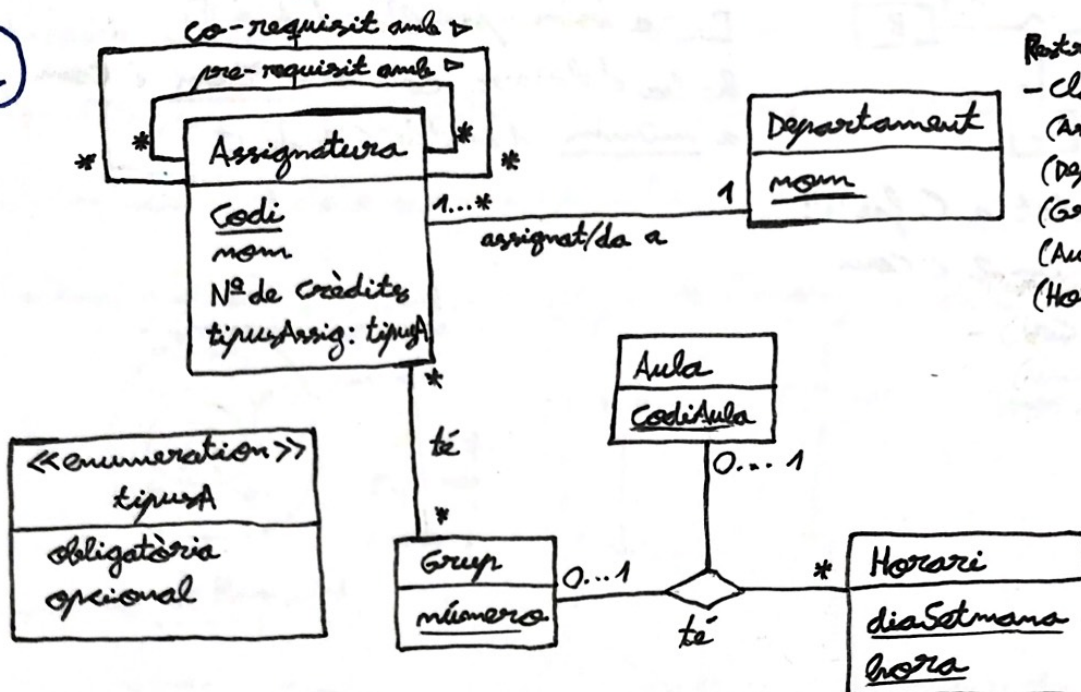 co-requisit amb ▷
pre-requisit amb ▷
*
*
*
*
Assignatura
Codi
nom
Nº de crèdits
tipusAssig: tipusA
1...*
assignat/da a
1
Departament
nom
- Cla
(As
(De
(Gr
(Au
(Ho
*
té
*
Aula
CodiAula
0...1
<<enumeration>>
tipusA
obligatòria
opcional
Grup
número
0...1
té
*
Horari
diaSetmana
hora